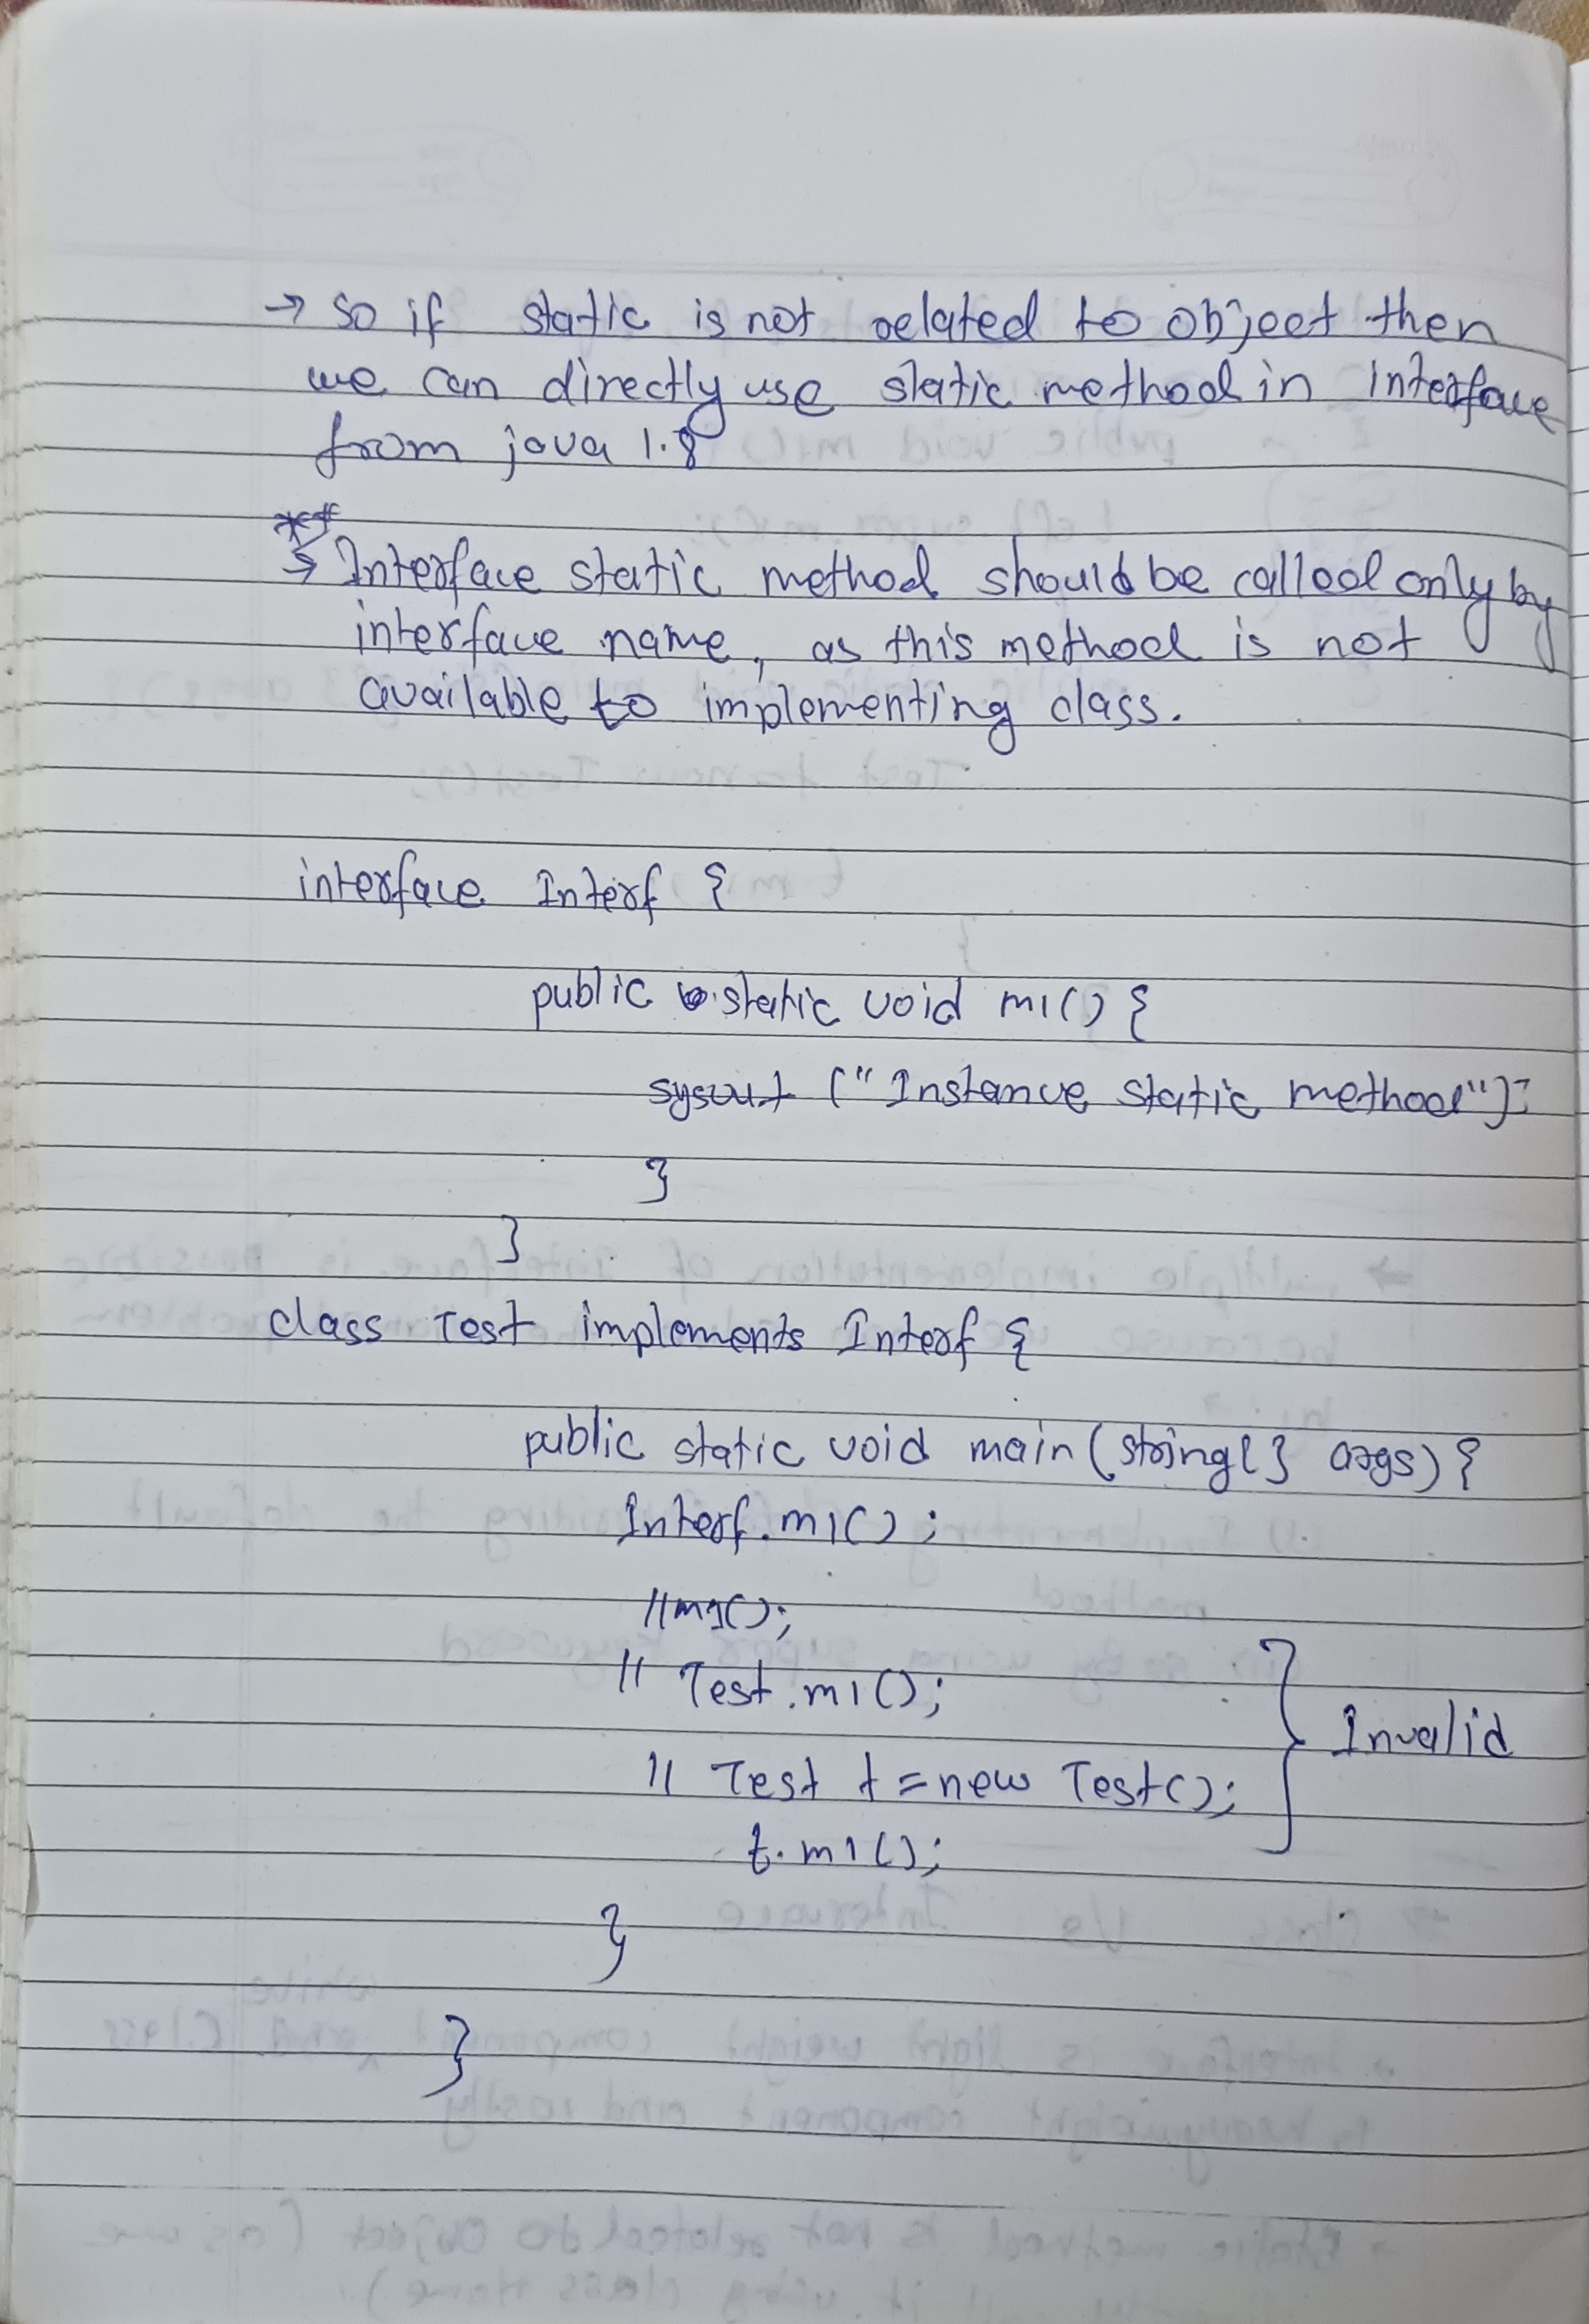 → so if static is not related to object then
we can directly use static method in interface
from java 1.8
**
→ Interface static method should be called only by
interface name, as this method is not
available to implementing class.
interface Interf {
public static void m1() {
sysout ("Instance static method");
}
}
class Test implements Interf {
public static void main(string[] args) {
Interf.m1();
//m1();
// Test.m1();
} Invalid
// Test t = new Test();
t.m1();
}
}